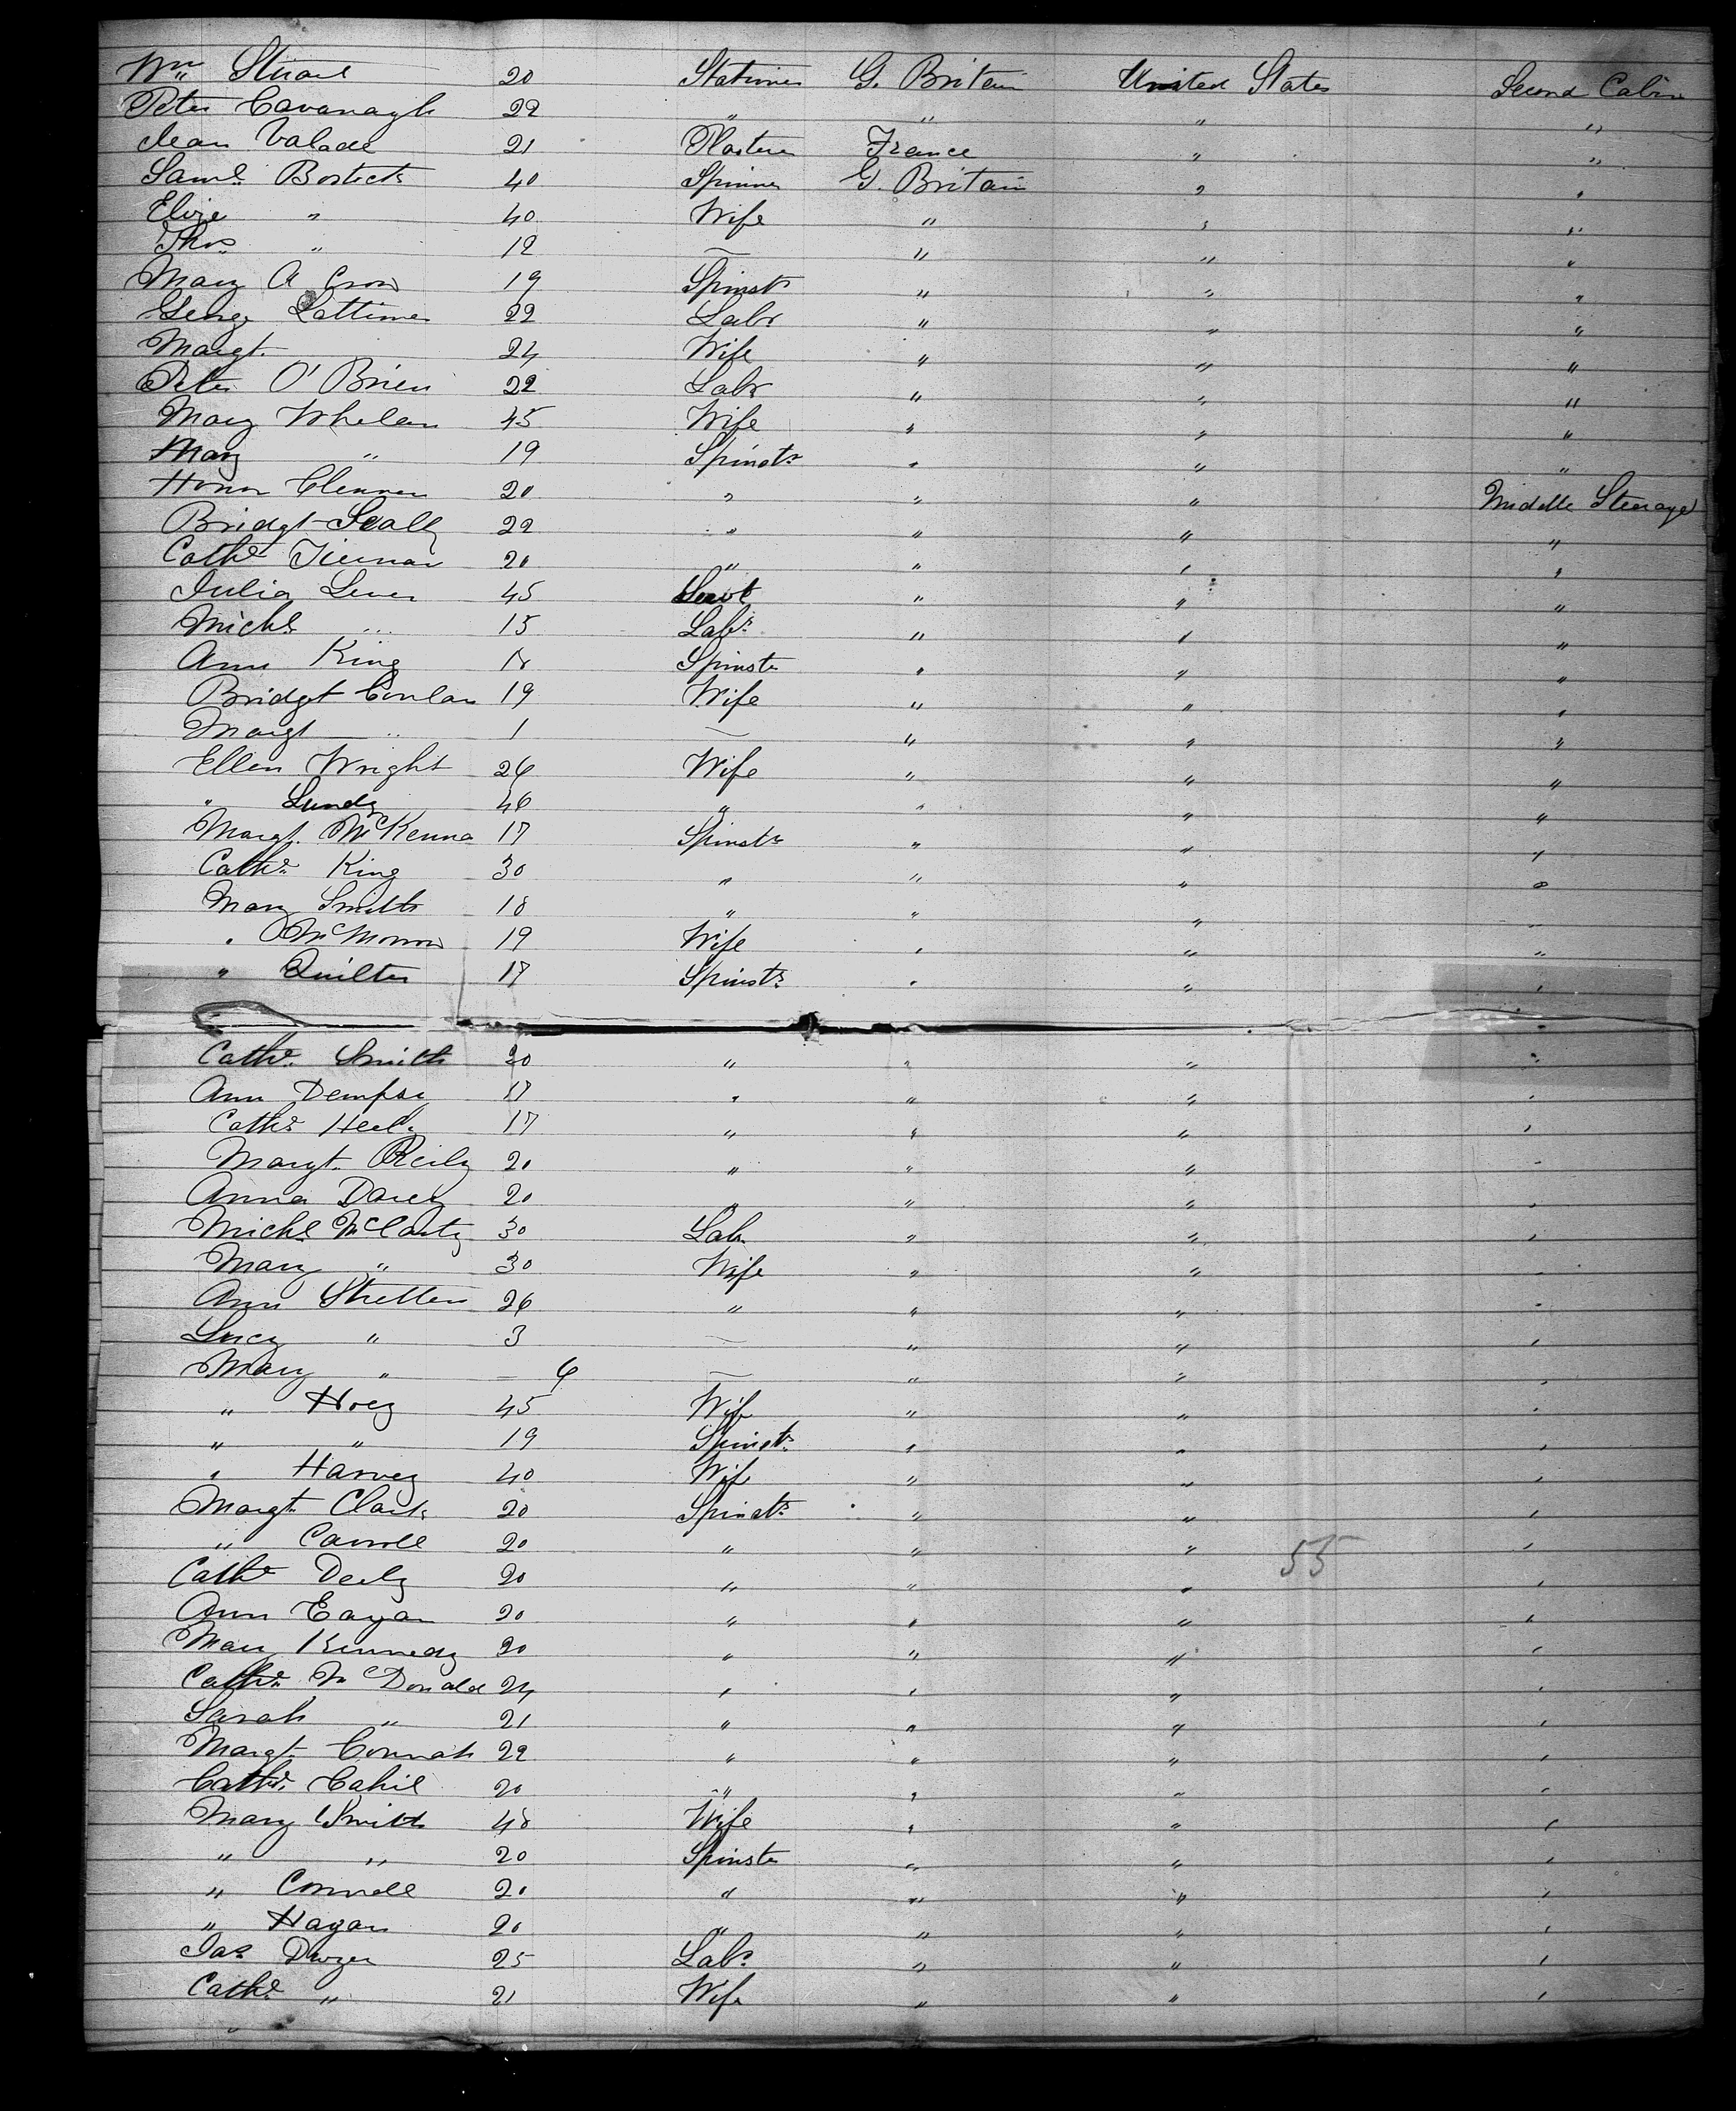 Wm Stuart 20 Stationer G. Britain United States Second Cabin
Peter Cavanagh 22 " " " "
Jean Valade 21 Plasterer France " "
Saml Bostock 40 Spinner G. Britain " "
Elize " 40 Wife " " "
Thos " 12 — " " "
Mary A Cron 19 Spinstr " " "
Lattimer 22 Labr " " "
Margt. 24 Wife " " "
Peter O'Brien 22 Labr " " "
Mary Whelan 45 Wife " " "
Mary " 19 Spinstr " " "
Honor 20 " " " Middle Steerage
Bridgt Scally 22 " " " "
Cathe Tiernan 20 " " " "
Julia 45 Servt " " "
Michl " 15 Labr " " "
Ann King 18 Spinstr " " "
Bridgt Conlan 19 Wife " " "
Margt — " 1 — " " "
Ellen Wright 26 Wife " " "
" Lundy 46 " " " "
Margt. McKenna 17 Spinstr " " "
Cathe King 30 " " " "
Mary Smith 18 " " " "
" McMorrow 19 Wife " " "
" Quilter 17 Spinstr " " "
Cathe Smith 20 " " " "
Ann Dempsy 17 " " " "
Cathe Healy 17 " " " "
Margt. Reily 20 " " " "
Anna Darcy 20 " " " "
Michl McCarty 30 Labr " " "
Mary " 30 Wife " " "
Ann Stretten 26 " " " "
Lucy " 3 — " " "
Mary " — 6 — " " "
" Hoey 45 Wife " " "
" " 19 Spinstr " " "
" Harvey 40 Wife " " "
Margt. Clark 20 Spinstr " " "
" Carroll 20 " " " "
55
Cathe Deely 20 " " " "
Ann Eagan 20 " " " "
Mary Kennedy 20 " " " "
Cathe McDonald 24 " " " "
Sarah " 21 " " " "
Margt. Connah 22 " " " "
Cathe Cahil 20 " " " "
Mary Smith 48 Wife " " "
" " 20 Spinstr " " "
" Connell 20 " " " "
" Hagan 20 " " " "
Jas Dwyer 25 Labr " " "
Cathe " 21 Wife " " "